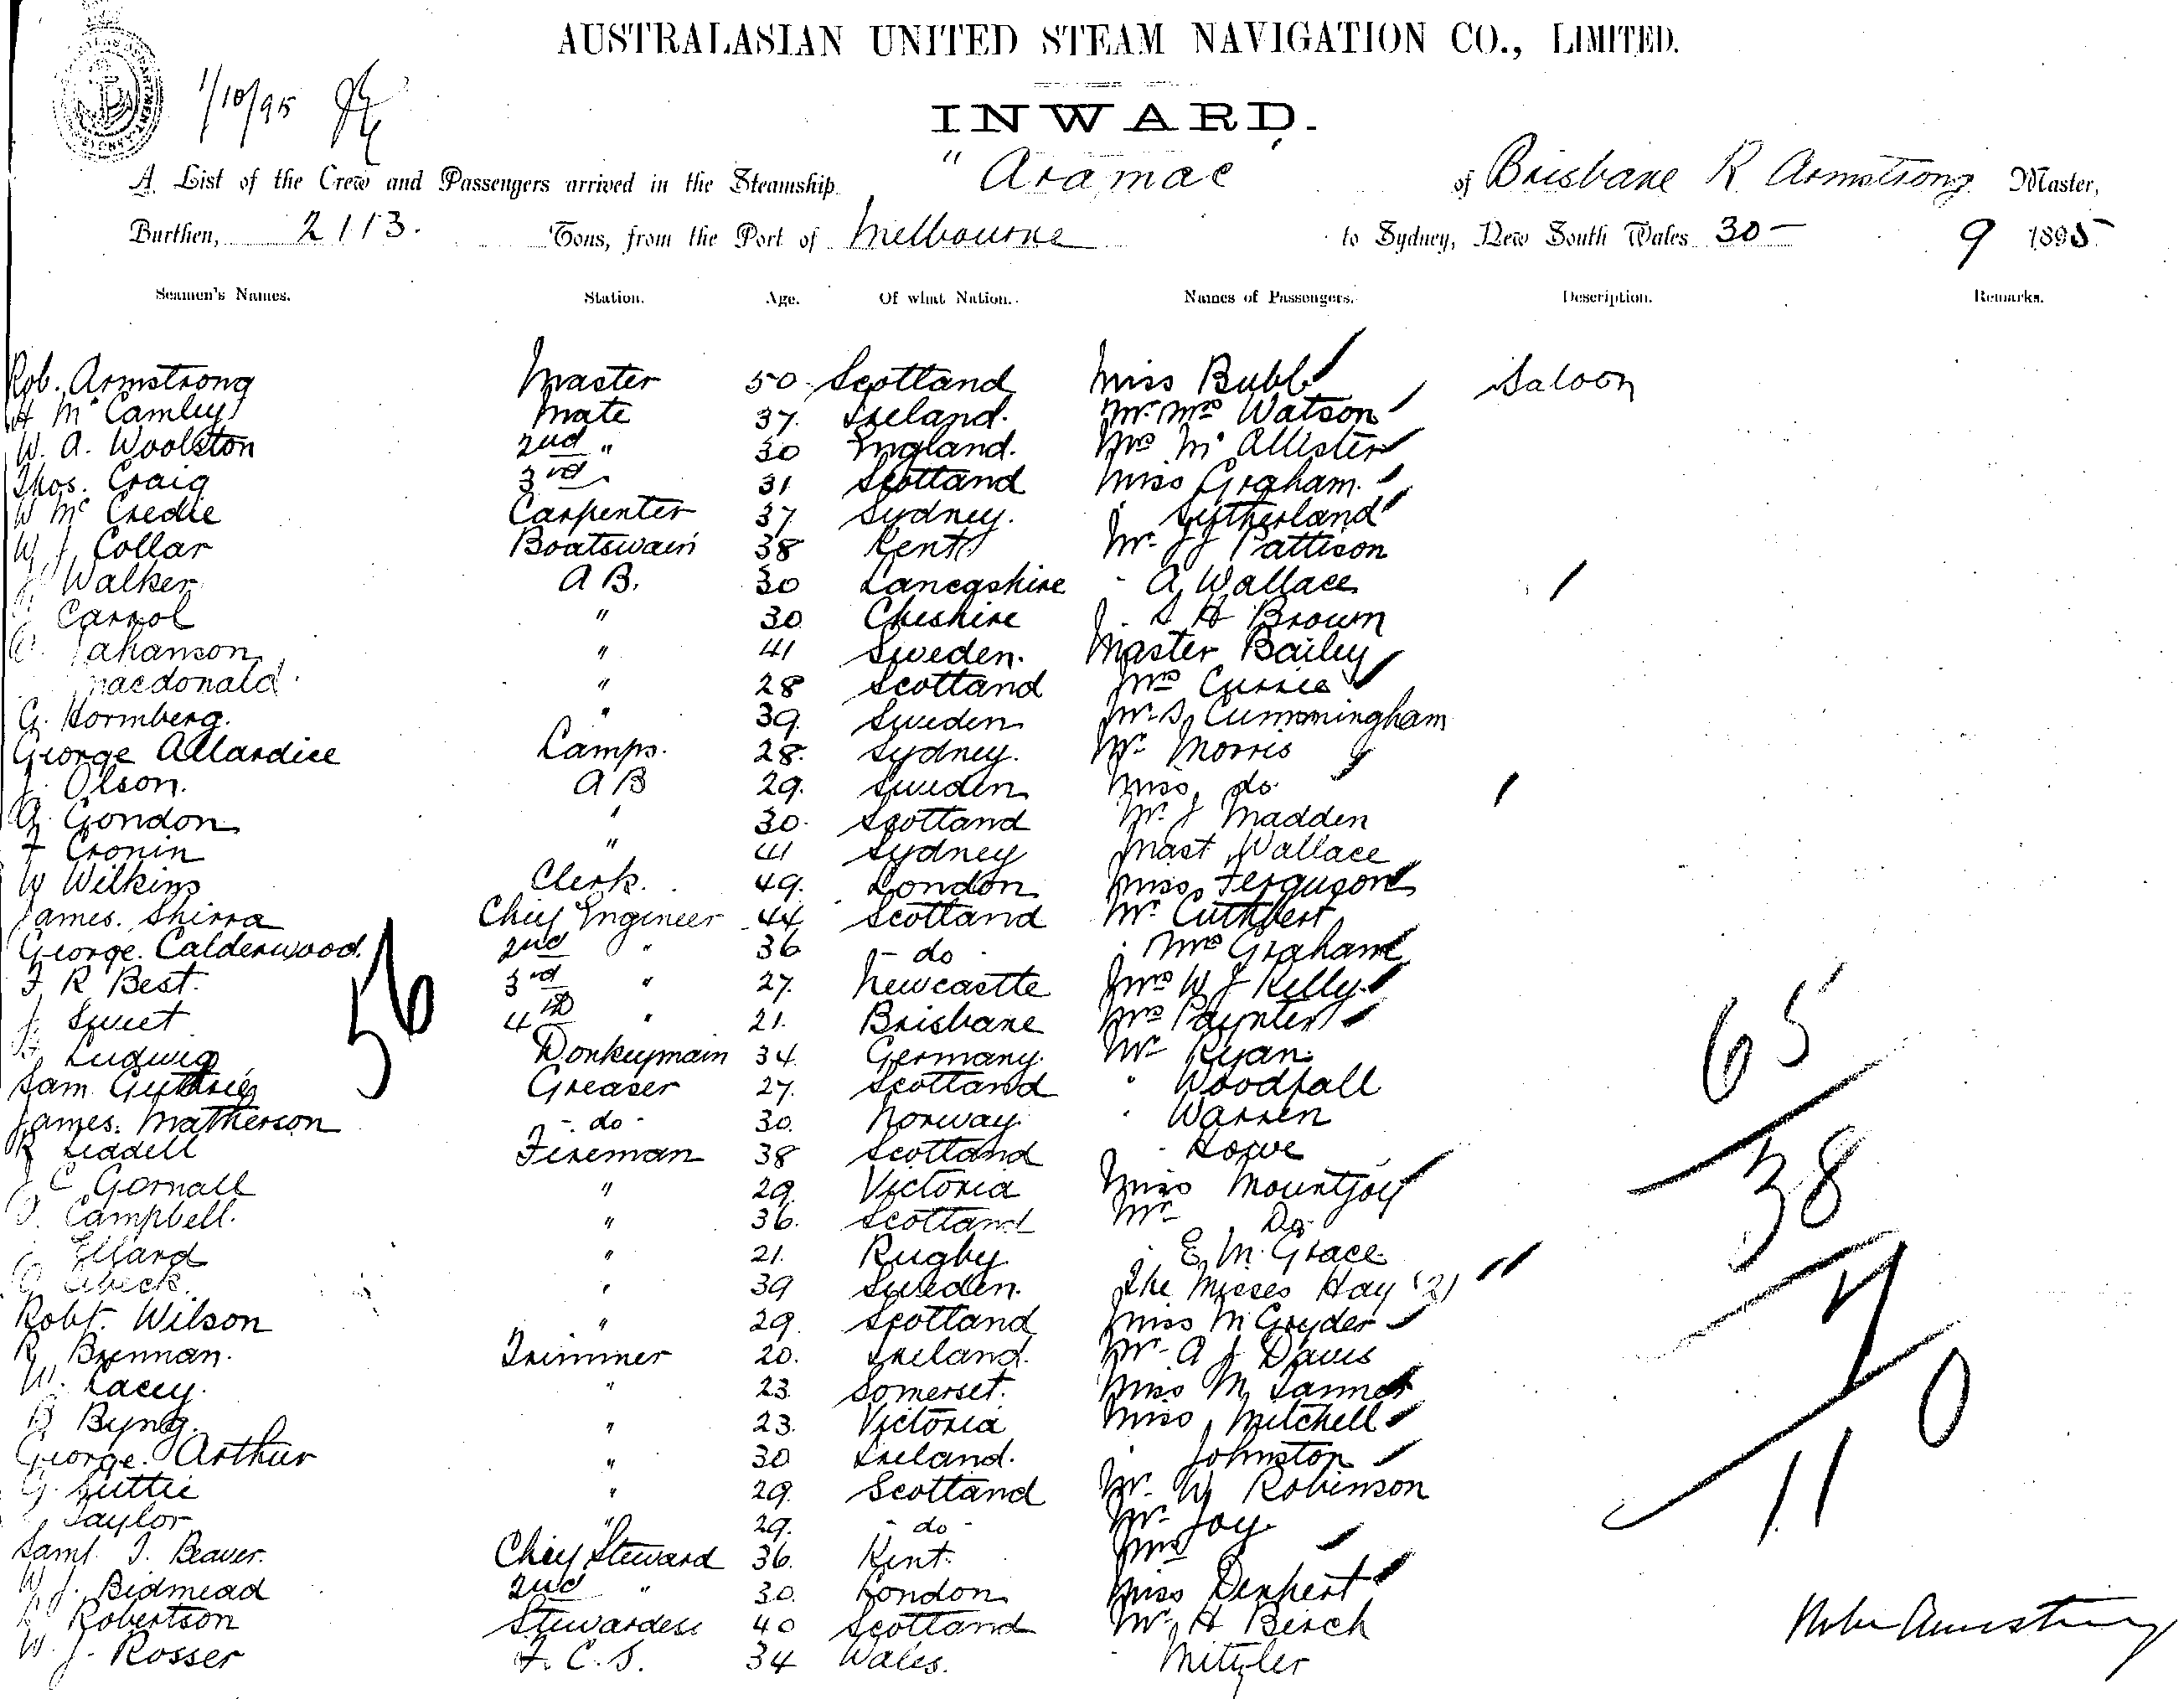 AUSTRALASIAN UNITED STEAM NAVIGATION CO., LIMITED.
1/10/95
INWARD.
A List of the Crew and Passengers arrived in the Steamship "Aramac" of Brisbane R Armstrong Master,
Burthen, 2113. Tons, from the Port of Melbourne to Sydney, New South Wales 30 - 9 1895
Seamen's Names. Station. Age. Of what Nation. Names of Passengers. Description. Remarks.
Rob. Armstrong Master 50 Scotland Miss Bubb Saloon
H McCamley Mate 37. Ireland. Mr Mrs Watson
W. A. Woolston 2nd " 30 England. Mrs McAllister
Thos. Craig 3rd 31 Scotland Miss Graham
W McCredie Carpenter 37 Sydney. " Sutherland
W J Collar Boatswain 38 Kent Mr. JJ Pattison
Walker A B. 30 Lancashire " A Wallace
Carrol " 30 Cheshire " S H Brown
Jahanson " 41 Sweden. Master Bailey
Macdonald " 28 Scotland Mrs Currie
G. Hormberg. " 39. Sweden Mr S Cummingham
George Allardice Lamps. 28. Sydney. Mr Morris
J. Olson. A B 29. Sweden Miss do
A. Gondon " 30. Scotland Mr J Madden
F Cronin " 41 Sydney Mast Wallace
W Wilkins Clerk. 49. London Miss Ferguson
James. Shirra Chief Engineer 44 Scotland Mr. Cuthbert
George. Calderwood. 2nd " 36 - do - Mrs Graham
F R Best. 3rd " 27. Newcastle Mrs W J Kelly
J. Sweet 4th " 21. Brisbane Mrs Paynter
56
Ludwig Donkeymain 34. Germany. Mr Ryan
65
Sam Guthrie Greaser 27. Scotland " Woodfall
James. Matherson - do - 30. Norway. " Warren
R Liddell Fireman 38 Scotland " Lowe
38
J C Gornall " 29. Victoria Miss Mountjoy
Campbell. " 36. Scotland Mr Do
Ellard " 21. Rugby " E. M. Grace
" 39 Sweden. The Misses Hay (2)
7
Robt. Wilson " 29. Scotland Miss McGryder
R Brennan. Trimmer 20. Ireland. Mr A J Davis
W. Lacey. " 23. Somerset. Miss M Tanner
0
B Byng. " 23. Victoria Miss Mitchell
George. Arthur " 30 Ireland. " Johnston
11
G. Suttie " 29. Scotland Mr. W Robinson
Taylor " 29. - do - Mr. Joy
Saml. J. Beaver. Chief Steward 36. Kent. Mrs
W J. Bidmead 2nd " 30. London Miss Denhert
Robertson Stewardess 40 Scotland Mr H Birch
W. J. Rosser F. C. S. 34 Wales. " Mitzler
Robr Armstrong